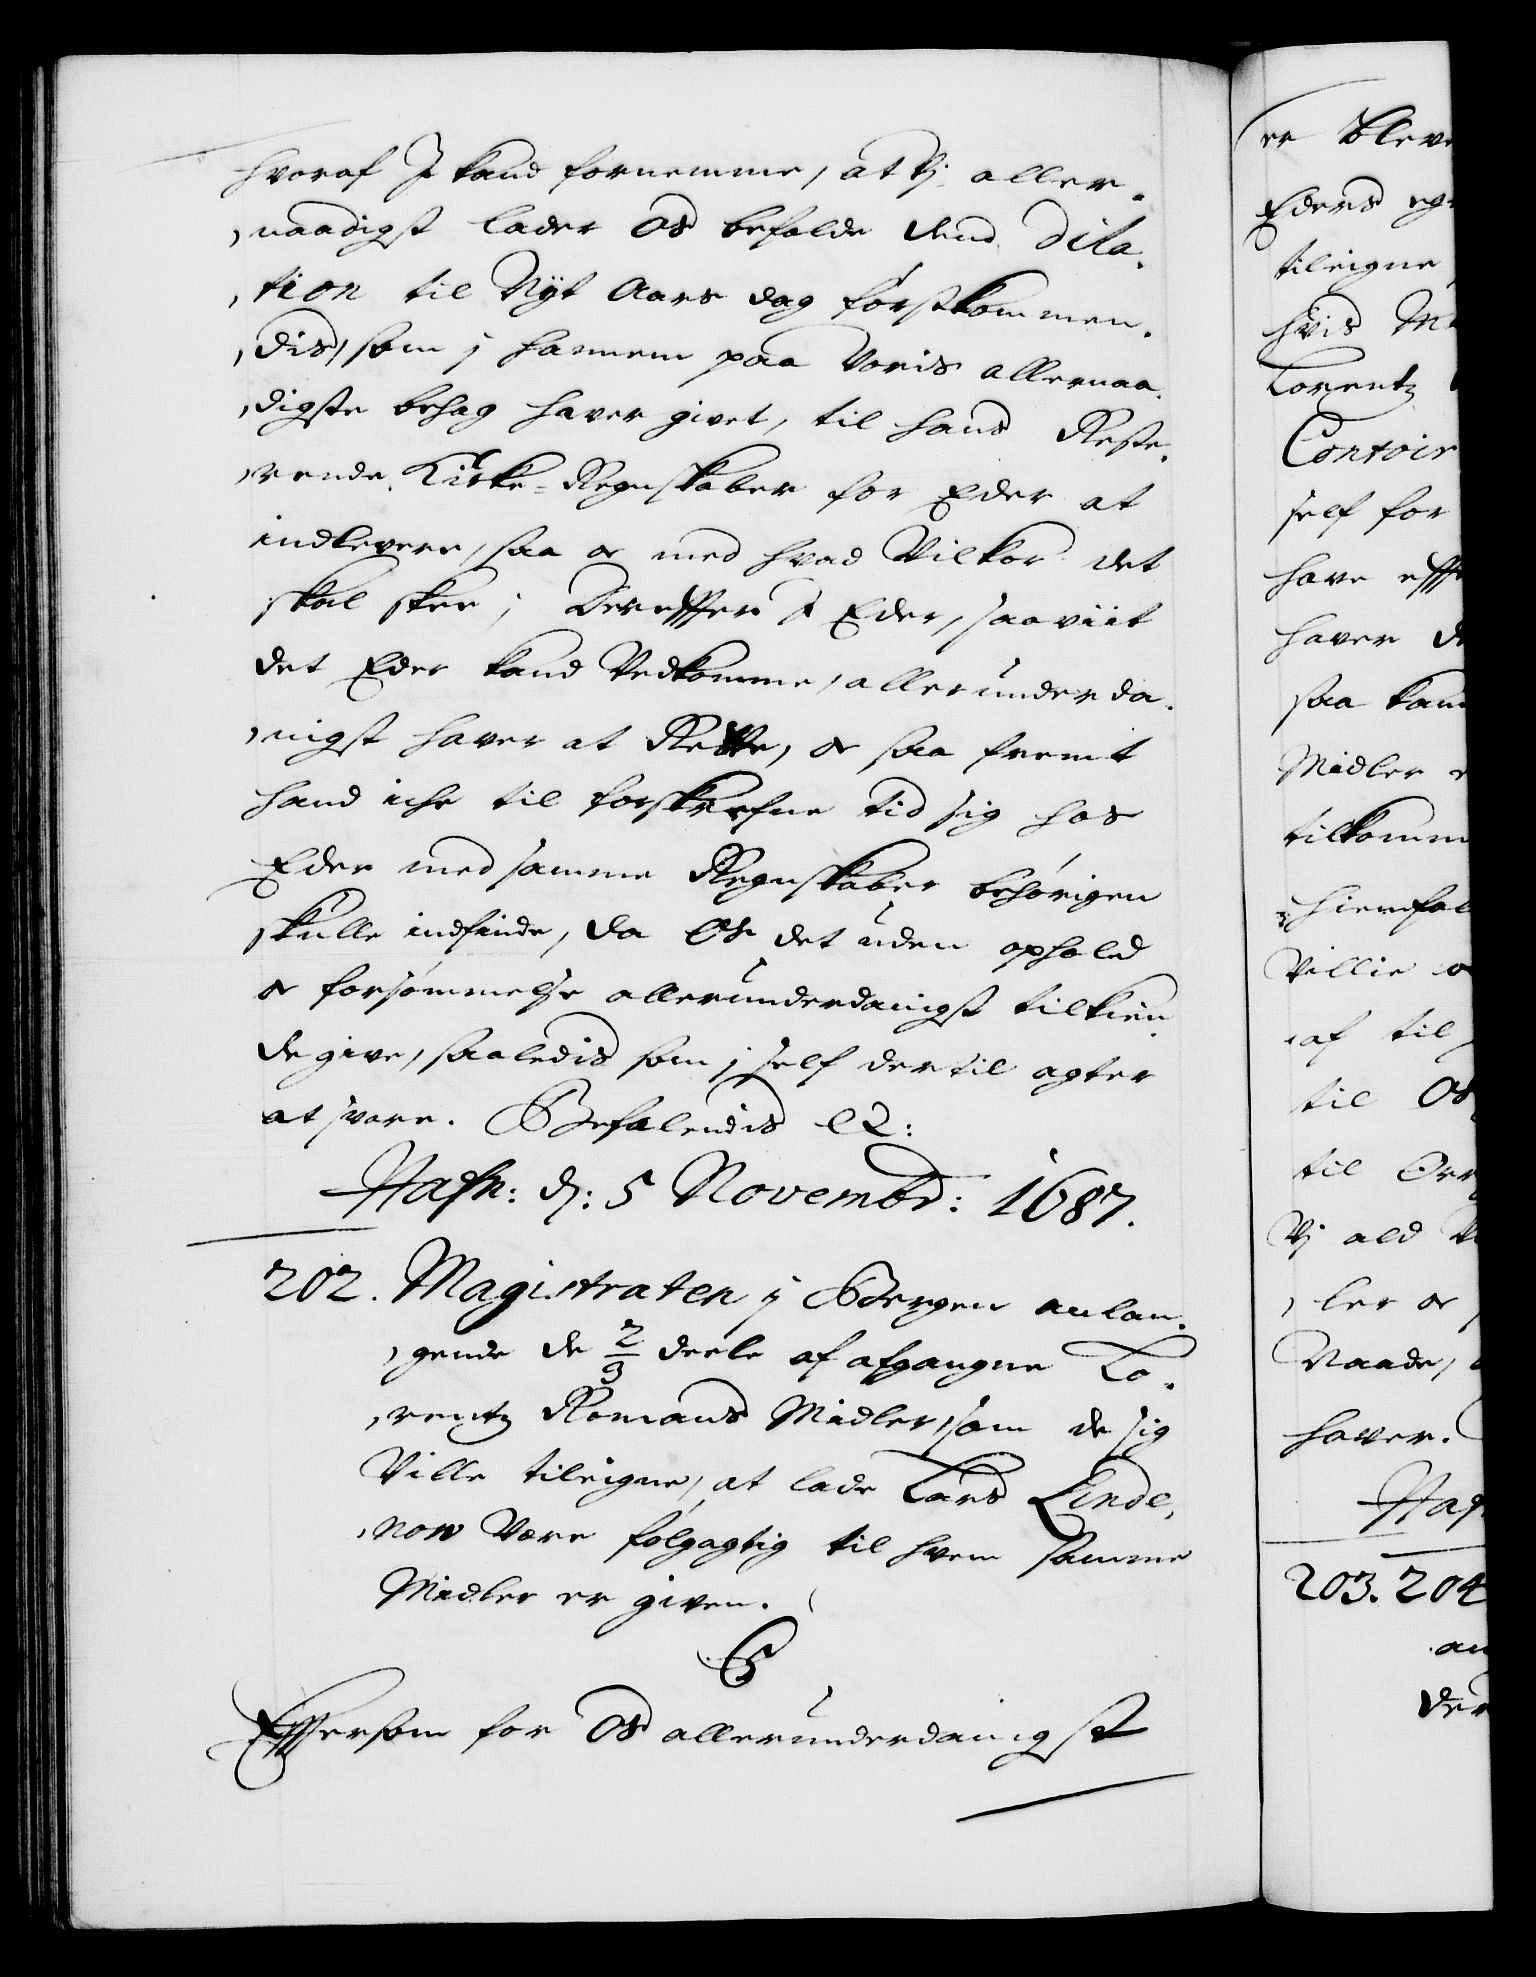 hvoraf I kand fornemme, at Vj aller-
,naadigst lader Os befalde dend Dila-
,tion til Nyt Aars dag førstkommen-
,dis, som j hannem paa Voris allernaa-
,digste behag haver givet, til hans Reste-
,rende Kirke-Regnskaber for Eder at
indlevere, saa og med hvad Vilkor det
skal skee; Dereffter I Eder, saaviit
det Eder kand Vedkomme, allerunderda-
,nigst haver at Rette, og saa fremt
hand iche til forskrefne tid sig hos
Eder med samme Regnskaber behørigen
skulle indfinde, da Os det uden ophold
og forsømmelse allerunderdanigst tilkien-
de give, saaledis som j self dertil agter
at svare. Befalendis etc:
Hafn: d: 5 Novembr: 1687.
202. Magistraten j Bergen anlan-
,gende de 2/3 deele af afgangne Lo-
,rentz Romans Midler, som de sig
Ville tileigne, at lade Lars Linde,
,now Være følgagtig til hvem samme
Midler er given.
C5
Efftersom for Os allerunderdanigst
er bleve
Eders eg
tileigne
hvis M
Lorentz
Contoir
self for
have eff
haver d
saa kan
Midler
tilkomm
hierefal
Villie og
af til
til Os
til Orr
Vj ald V
,ler og
Naade,
haver.
Haf
203. 204
an
der